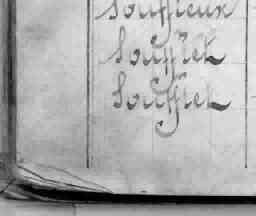 Souffleux
Soufflet
Soufflet